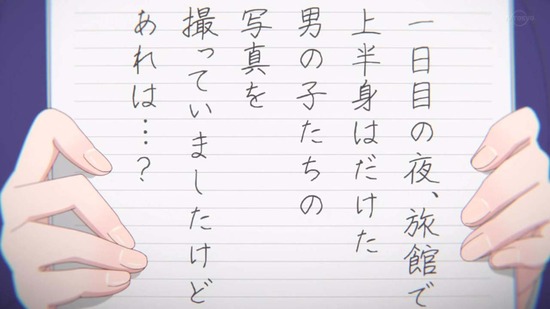 一日目の夜、旅館で
上半身はだけた
男の子たちの
写真を
撮っていましたけど
あれは…?